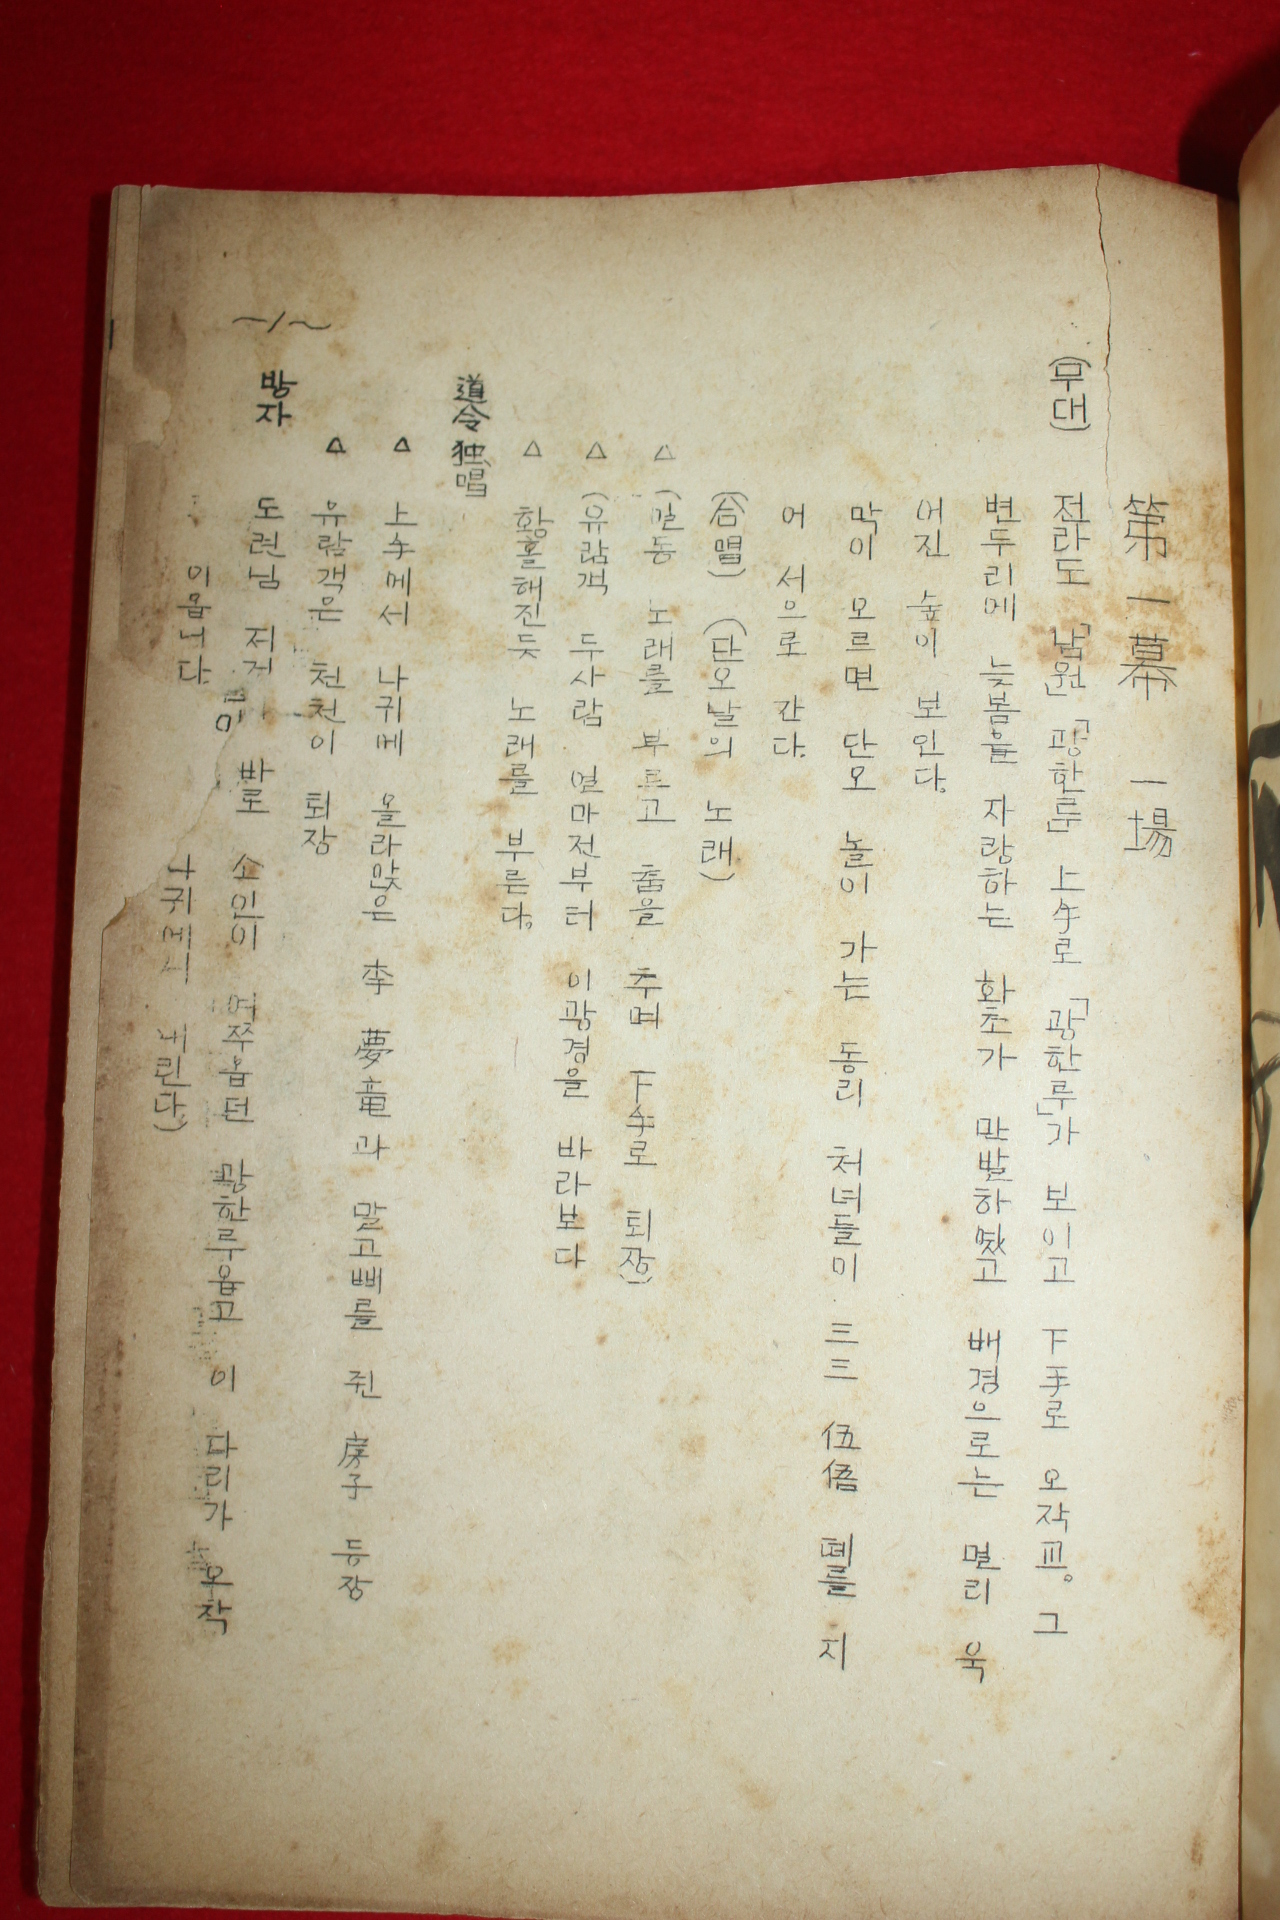 第一幕 一場
(무대) 전라도 「남원」 「광한루」 上手로 「광한루」가 보이고 下手로 오작교。 그
변두리에 늦봄을 자랑하는 화초가 만발하였고 배경으로는 멀리 욱
어진 숲이 보인다。
막이 오르면 단오 놀이 가는 동리 처녀들이 三三 伍伍 떼를 지
어 서으로 간다。
(合唱) (단오날의 노래)
△ (일동 노래를 부르고 춤을 추며 下手로 퇴장)
△ (유람객 두사람 얼마전부터 이광경을 바라보다
△ 황홀해진듯 노래를 부른다。
道令 独唱
△ 上手에서 나귀에 올라앉은 李 夢竜과 말고삐를 쥔 房子 등장
△ 유람객은 천천이 퇴장
방자 도련님 저게 바로 소인이 여쭈옵던 광한루옵고 이 다리가 오작
이옵니다 나귀에서 내린다)
~1~